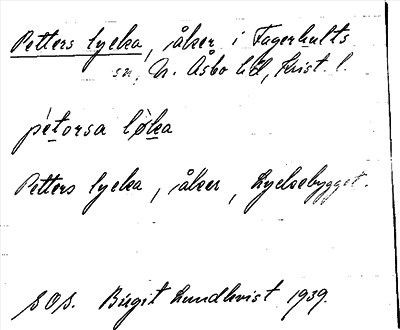 Petters lycka, åker i Fagerhults
sn, N. Åsbo hd, Krist. l.
pètorsa lø̀ka
Petters lycka, åker, Lyckebygget.
SOS. Birgit Lundkvist 1939.